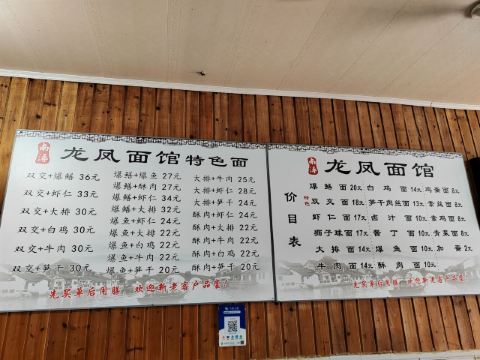 南浔
龙凤面馆特色面
双交+爆鳝 36元
双交+虾仁 33元
双交+大排 30元
双交+白鸡 30元
双交+牛肉 30元
双交+笋干 30元
爆鳝+爆鱼 27元
爆鳝+酥肉 27元
爆鳝+虾仁 34元
爆鳝+大排 32元
爆鱼+大排 22元
爆鱼+白鸡 22元
爆鱼+牛肉 22元
爆鱼+笋干 20元
大排+牛肉 25元
大排+虾仁 28元
大排+笋干 24元
酥肉+虾仁 24元
酥肉+白鸡 22元
酥肉+牛肉 22元
酥肉+笋干 20元
先买单后用膳，欢迎新老客户品尝！
南浔
龙凤面馆
价目表
爆鳝面 20元 白鸡面 14元 鸡蛋面 8元
双交面 18元 笋干肉丝面 13元 素丝面 8元
虾仁面 17元 卤汁面 10元 素鸡面 8元
狮子球面 17元 酱丁面 10元 青菜面 8元
大排面 14元 爆鱼面 10元 加蛋 2元
牛肉面 14元 酥肉面 10元
先买单后用膳，欢迎新老客户品尝！